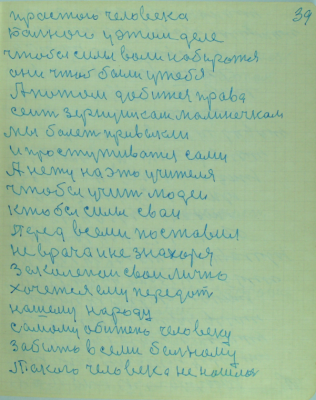 39
простого человека
Болного у этом деле
чтобы силы воли набиратся
они чтоб были у тебя
А потом добится права
сеит зернушкам малинечкам
мы болет привыкли
и простуживатся сами
А нету на это учителя
чтобы учит людеи
кто бы силы сваи
Перед всеми поставил
не врача и не знахоря
Закалепои сваи лично
хочется ему передат
нашему народу
самому обижено человеку
забыто всеми болному
Такого человека не нашлос